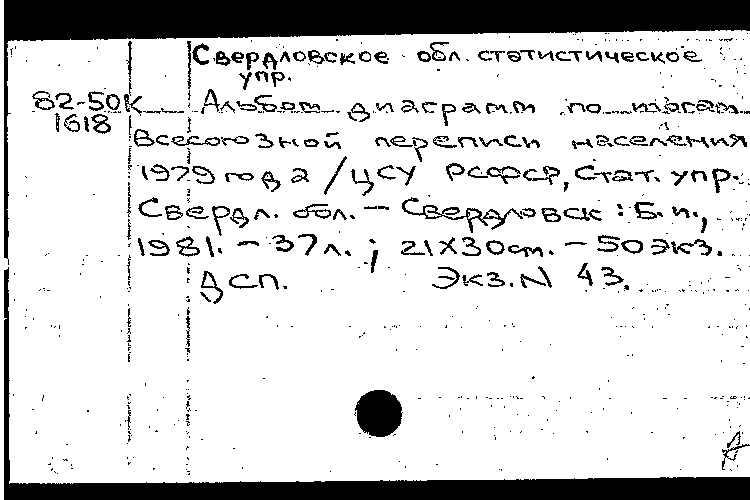 Свердловское обл. статистическое
упр.
82-50К Альбом диаграмм по итогам
1618
Всесоюзной переписи населения
1979 года / ЦСУ РСФСР, Стат. упр.
Свердл. обл. — Свердловск : Б.и.,
1981. — 37л. ; 21X30см. — 50 экз.
ДСП. Экз. N 43.
А